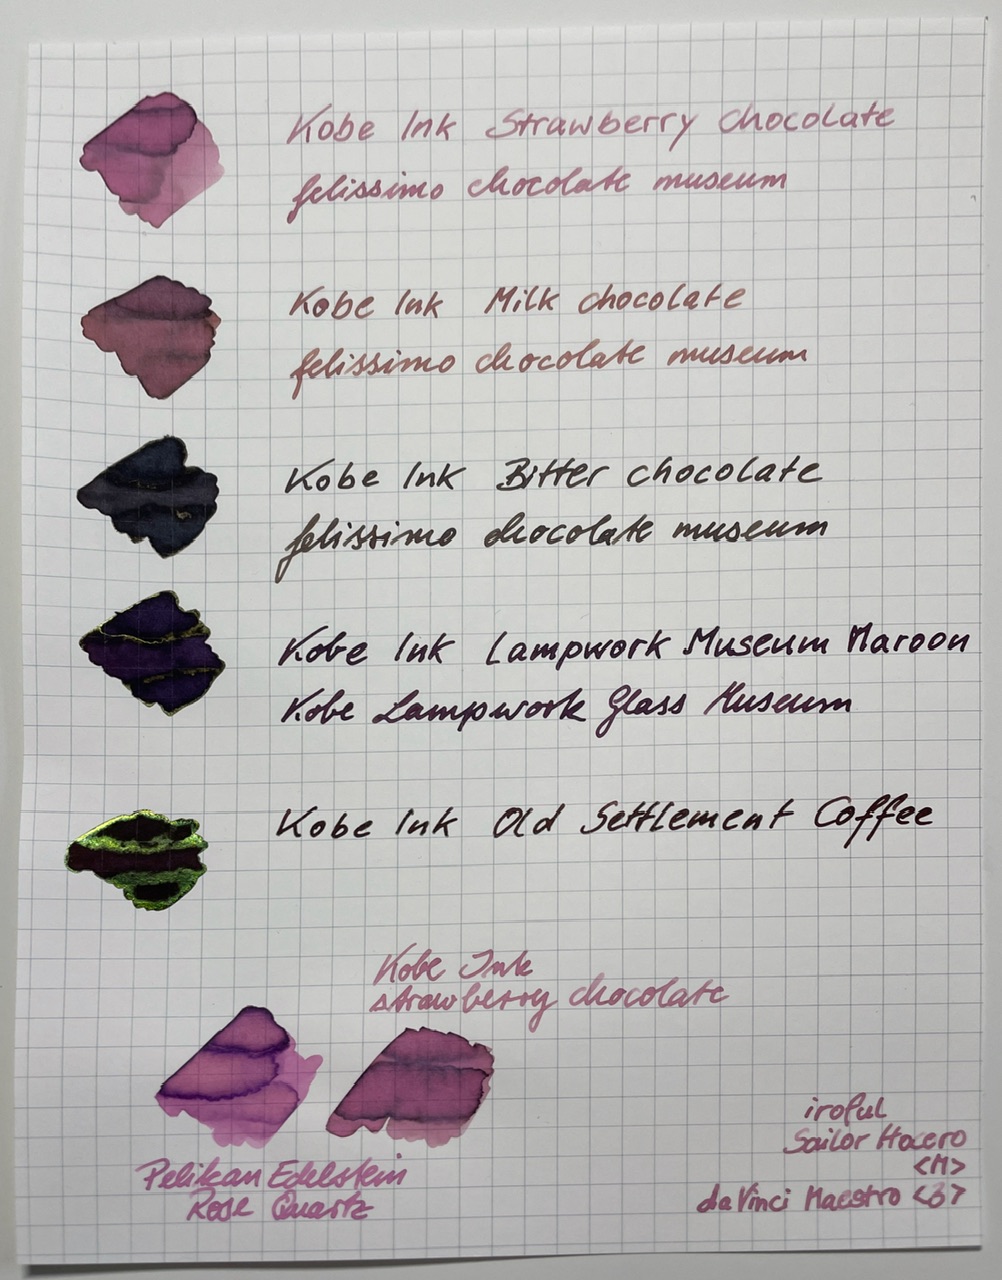 Kobe Ink Strawberry chocolate
felissimo chocolate museum
Kobe Ink Milk chocolate
felissimo chocolate museum
Kobe Ink Bitter chocolate
felissimo chocolate museum
Kobe Ink Lampwork Museum Maroon
Kobe Lampwork Glass Museum
Kobe Ink Old Settlement Coffee
Kobe Ink
strawberry chocolate
Pelikan Edelstein
Rose Quartz
iroful
Sailor Hocoro
<M>
da Vinci Maestro <3>